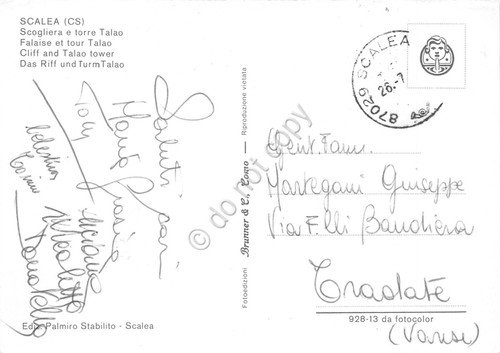 SCALEA (CS)
Scogliera e torre Talao
Falaise et tour Talao
Cliff and Talao tower
Das Riff und Turm Talao
Saluti cari
Maria Grazia
Tony
Celestina
Edit. Palmiro Stabilito - Scalea
Fotoedizioni Brunner & C., Como — Riproduzione vietata
do not copy
87029 SCALEA
26.-7
Gent. Fam.
Martegani Giuseppe
Via F.lli Bandiera
Tradate
928-13 da fotocolor
(Varese)